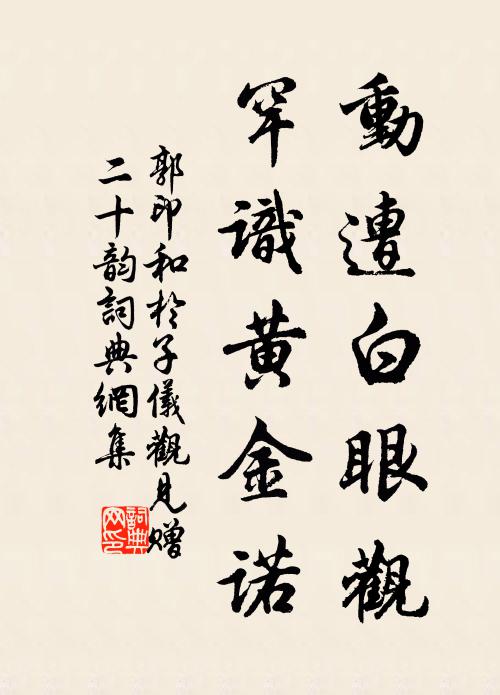 動遭白眼觀
罕識黄金諾
郭印和於子儀觀見赠
二十韵詞典網集
詞典网印